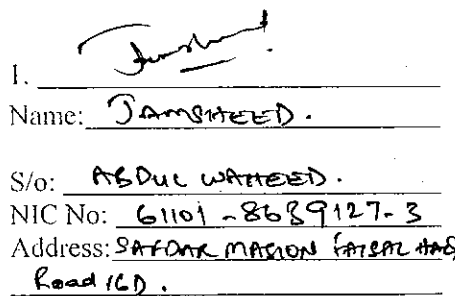 1.
Name: JAMSHEED.
S/o: ABDUL WAHEED.
NIC No: 61101-8639127-3
Address: SAFDAR MASION FAISAL HAQ
Road IGD.